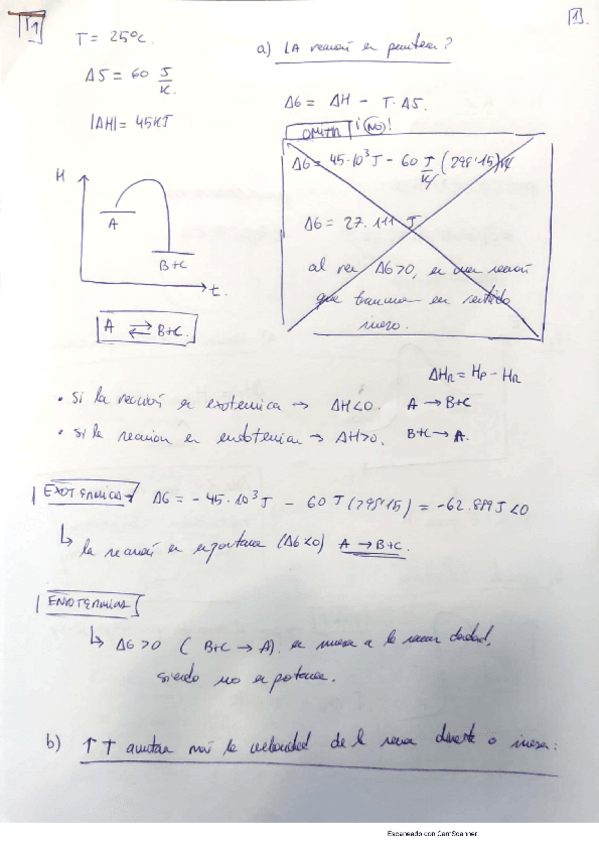 1
1
T = 25°C.
a) LA reacción es espontánea?
ΔS = 60 J/K.
|ΔH| = 45 KJ
ΔG = ΔH - T·ΔS.
OMITIR ¡NO!
ΔG = 45·10³ J - 60 J/K (298'15) K
ΔG = 27.111 J
al ser ΔG>0, es una reacción
que transcurre en sentido
inverso.
H
A
B+C
t.
A ⇄ B+C.
ΔHR = HP - HR
• Si la reacción es exotermica → ΔH<0. A → B+C
• Si la reaccion es endotermica → ΔH>0. B+C → A.
EXOTERMICA → ΔG = -45·10³ J - 60 J (298'15) = -62.889 J <0
↳ la reacción es espontanea (ΔG<0) A → B+C.
ENDOTERMICAS
↳ ΔG>0 (B+C → A). es inversa a la
siendo no espontanea.
b) ↑T aumentan más la velocidad de la reacc directa o inversa:
Escaneado con CamScanner